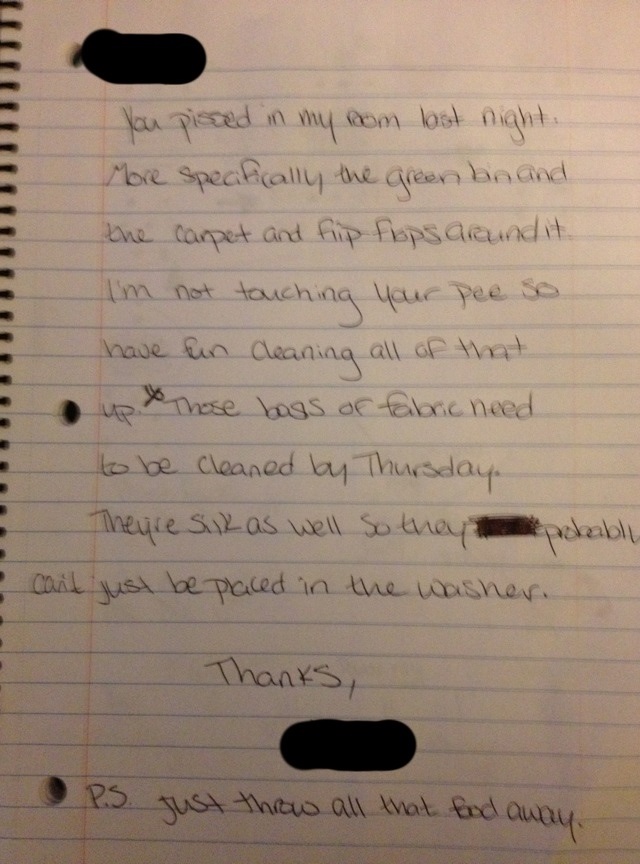 You pissed in my room last night.
More specifically the green bin and
the carpet and flip flops around it.
I'm not touching your pee so
have fun cleaning all of that
up. * Those bags of fabric need
to be cleaned by Thursday.
They're silk as well so they probably
can't just be placed in the washer.
Thanks,
P.S. just throw all that food away.